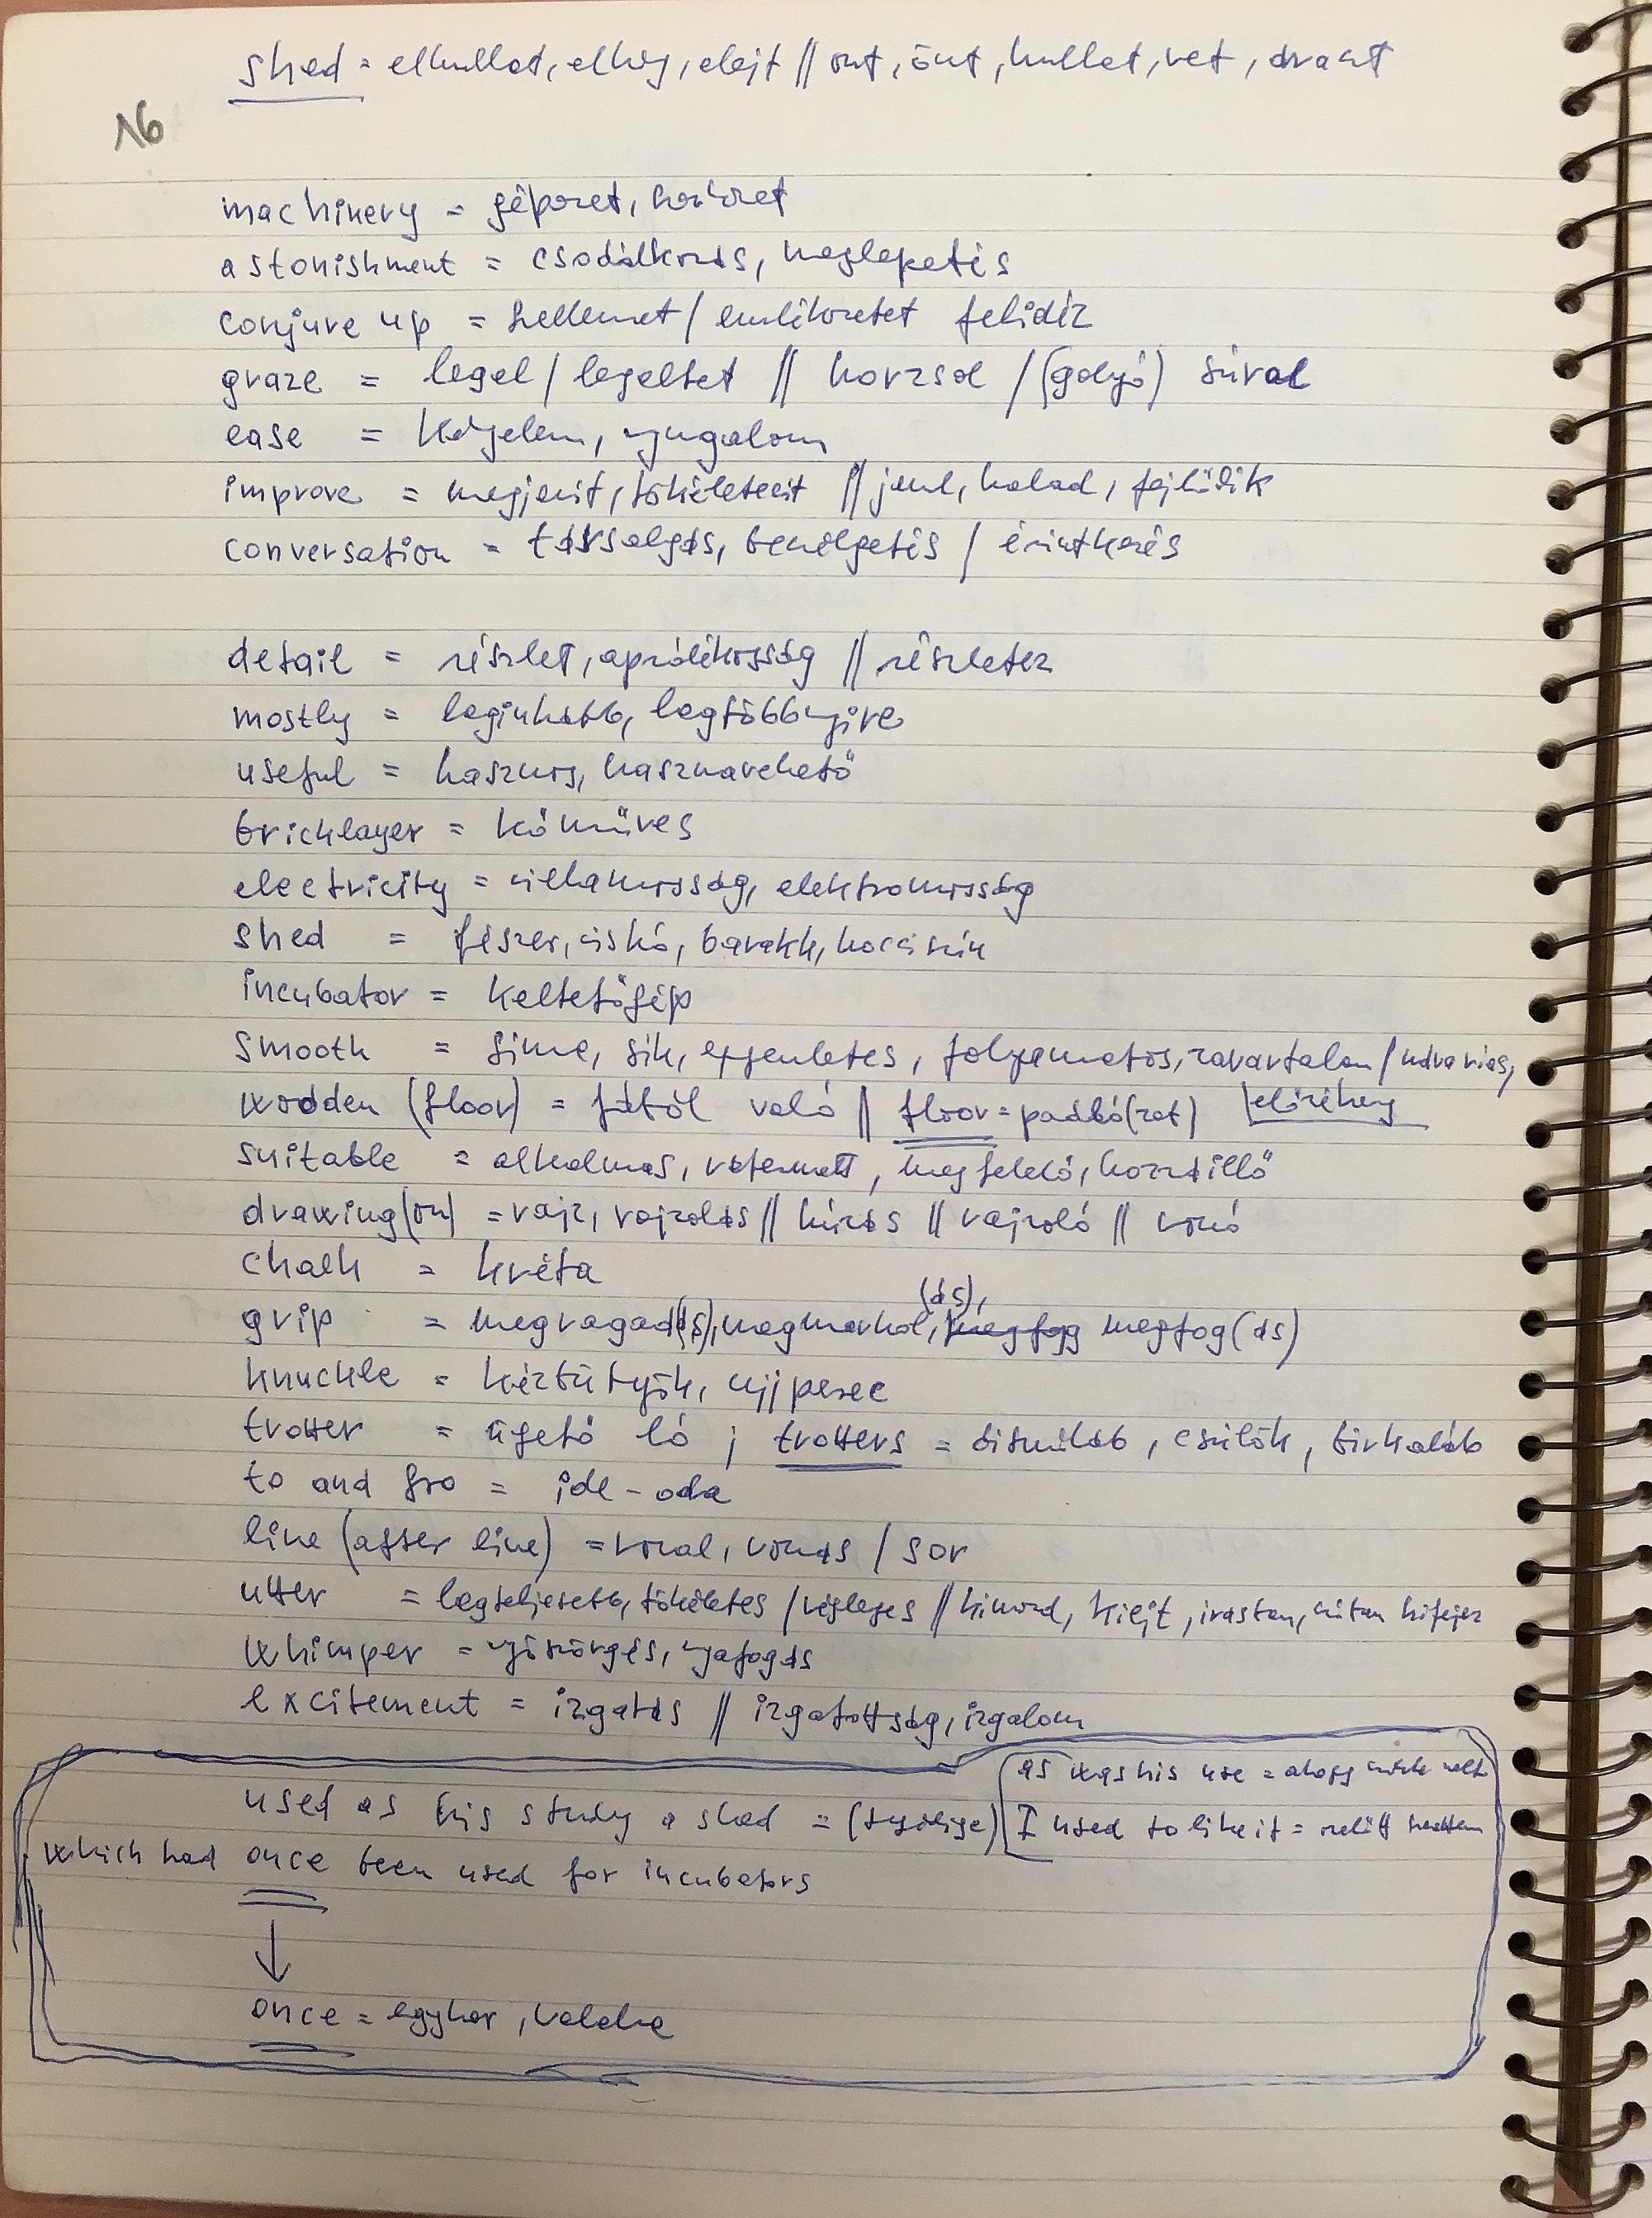 shed = elhullat, elhagy, elejt // ont, önt, hullat, vet, áraszt
16
machinery = gépezet, szerkezet
astonishment = csodálkozás, meglepetés
conjure up = szellemet / emlékezetet felidéz
graze = legel / legeltet // horzsol / (golyó) súrol
ease = kényelem, nyugalom
improve = megjavít, tökéletesít // javul, halad, fejlődik
conversation = társalgás, beszélgetés / érintkezés
detail = részlet, aprólékosság // részletez
mostly = leginkább, legtöbbnyire
useful = hasznos, hasznavehető
bricklayer = kőműves
electricity = villamosság, elektromosság
shed = fészer, viskó, barakk, kocsiszín
incubator = keltetőgép
smooth = sima, sík, egyenletes, folyamatos, zavartalan / udvarias,
wodden (floor) = fából való // floor = padló(zat) előzékeny
suitable = alkalmas, rátermett, megfelelő, hozzáillő
drawing (on) = rajz, rajzolás // húzás // rajzoló // vonó
chalk = kréta
grip = megragad(ás), megmarkol(ás), megfog megfog(ás)
knuckle = kéztütyök, ujjperec
trotter = ügető ló ; trotters = disznóláb, csülök, birkaláb
to and fro = ide-oda
line (after line) = vonal, vonás / sor
utter = legteljesebb, tökéletes / végleges // kimond, kiejt, írásban, kifejez
whimper = nyöszörgés, nyafogás
excitement = izgatás // izgatottság, izgalom
as was his use = ahogy szokása volt
used as his study a shed =
I used to like it = szerettem
which had once been used for incubators
once = egykor, valaha